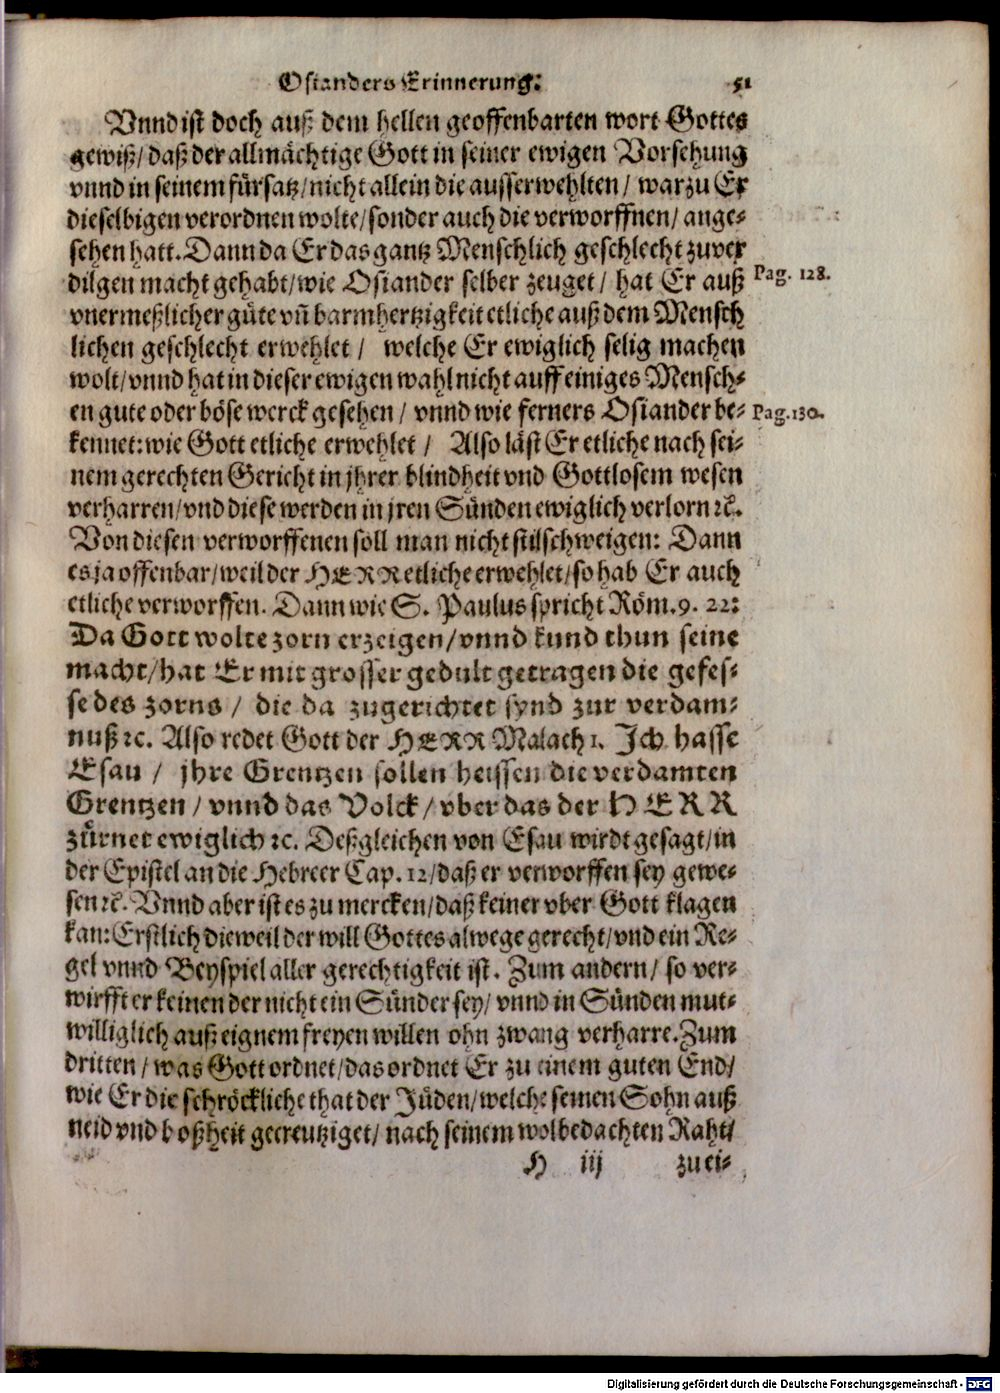 Osianders Erinnerung. 51
Vnnd ist doch auß dem hellen geoffenbarten wort Gottes
gewiß/ daß der allmächtige Gott in seiner ewigen Vorsehung
vnnd in seinem fürsatz/ nicht allein die ausserwehlten/ warzu Er
dieselbigen verordnen wolte/ sonder auch die verworffnen/ ange-
sehen hatt. Dann da Er das gantz Menschlich geschlecht zuver
dilgen macht gehabt/ wie Osiander selber zeuget/ hat Er auß
Pag. 128.
vnermeßlicher güte vñ barmhertzigkeit etliche auß dem Mensch
lichen geschlecht erwehlet/ welche Er ewiglich selig machen
wolt/ vnnd hat in dieser ewigen wahl nicht auff einiges Mensch-
en gute oder böse werck gesehen/ vnnd wie ferners Osiander be-
Pag. 130.
kennet: wie Gott etliche erwehlet/ Also läst Er etliche nach sei-
nem gerechten Gericht in jhrer blindheit vnd Gottlosem wesen
verharren/ vnd diese werden in jren Sünden ewiglich verlorn ꝛc.
Von diesen verworffenen soll man nicht stilschweigen: Dann
es ja offenbar/ weil der HERR etliche erwehlet/ so hab Er auch
etliche verworffen. Dann wie S. Paulus spricht Röm. 9. 22:
Da Gott wolte zorn erzeigen/ vnnd kund thun seine
macht/ hat Er mit grosser gedult getragen die gefes-
se des zorns/ die da zugerichtet synd zur verdam-
nuß ꝛc. Also redet Gott der HERR Malach 1. Jch hasse
Esau/ jhre Grentzen sollen heissen die verdamten
Grentzen/ vnnd das Volck/ vber das der HERR
zürnet ewiglich ꝛc. Deßgleichen von Esau wirdt gesagt/ in
der Epistel an die Hebreer Cap. 12/ daß er verworffen sey gewe-
sen ꝛc. Vnnd aber ist es zu mercken/ daß keiner vber Gott klagen
kan: Erstlich dieweil der will Gottes alwege gerecht/ vnd ein Re-
gel vnnd Beyspiel aller gerechtigkeit ist. Zum andern/ so ver-
wirfft er keinen der nicht ein Sünder sey/ vnnd in Sünden mut-
williglich auß eignem freyen willen ohn zwang verharre. Zum
dritten/ was Gott ordnet/ das ordnet Er zu einem guten End/
wie Er die schröckliche that der Jüden/ welche seinen Sohn auß
neid vnd boßheit gecreutziget/ nach seinem wolbedachten Raht/
H iij zu ei-
Digitalisierung gefördert durch die Deutsche Forschungsgemeinschaft - DFG